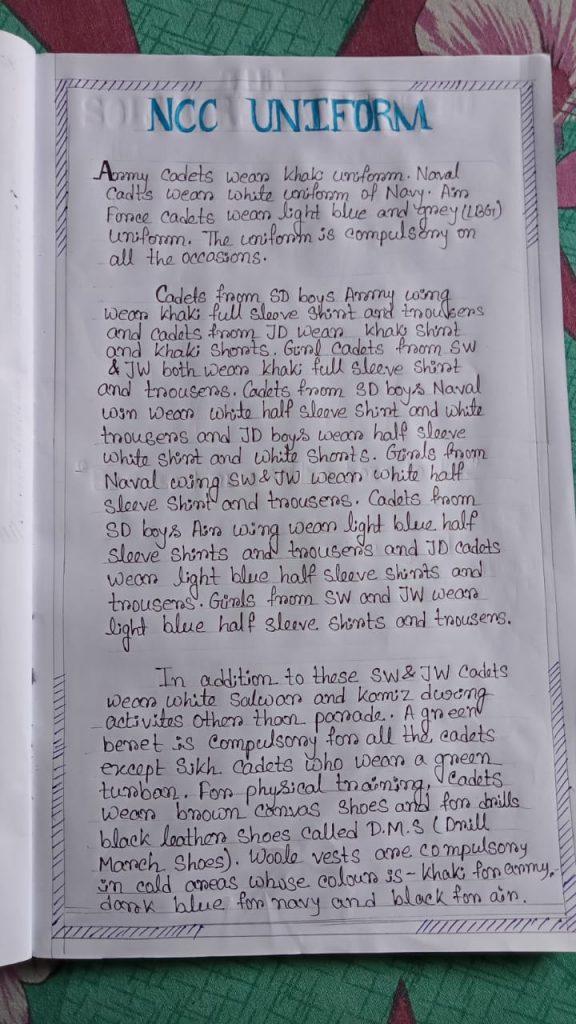 NCC UNIFORM
Army Cadets wear khaki uniform. Naval
Cadts wear white uniform of Navy. Air
Force cadets wear light blue and grey (LBG)
Uniform. The uniform is compulsory on
all the occasions.
Cadets from SD boys Army wing
wear khaki full sleeve shirt and trousers
and cadets from JD wear khaki shirt
and khaki shorts. Girl cadets from SW
& JW both wear khaki full sleeve shirt
and trousers. Cadets from SD boys Naval
win wear white half sleeve shirt and white
trousers and JD boys wear half sleeve
white shirt and white shorts. Girls from
Naval wing SW & JW wear white half
sleeve shirt and trousers. Cadets from
SD boys Air wing wear light blue half
sleeve shirts and trousers and JD cadets
wear light blue half sleeve shirts and
trousers. Girls from SW and JW wear
light blue half sleeve shirts and trousers.
In addition to these SW & JW cadets
wear white Salwar and kamiz during
activites other than parade. A green
beret is compulsory for all the cadets
except Sikh cadets who wear a green
turban. For physical training, cadets
wear brown canvas shoes and for drills
black leather shoes called D.M.S (Drill
March Shoes). Woole vests are compulsory
in cold areas whose colour is - khaki for army,
dark blue for navy and black for air.